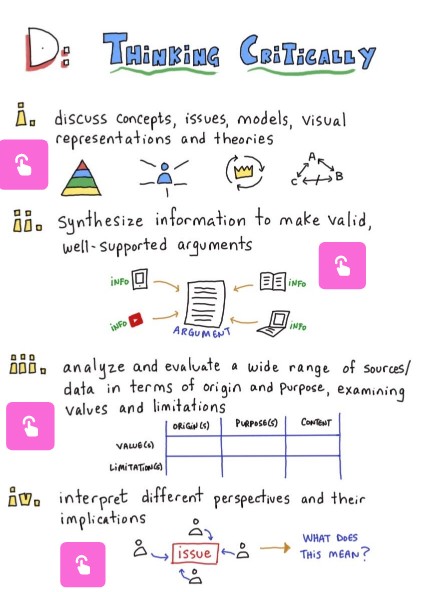 D: THINKING CRITICALLY
i. discuss concepts, issues, models, visual
representations and theories
A
C
B
ii. synthesize information to make valid,
well-supported arguments
INFO
INFO
INFO
INFO
ARGUMENT
iii. analyze and evaluate a wide range of sources/
data in terms of origin and purpose, examining
values and limitations
ORIGIN(S) PURPOSE(S) CONTENT
VALUE(S)
LIMITATION(S)
iv. interpret different perspectives and their
implications
issue
WHAT DOES
THIS MEAN?